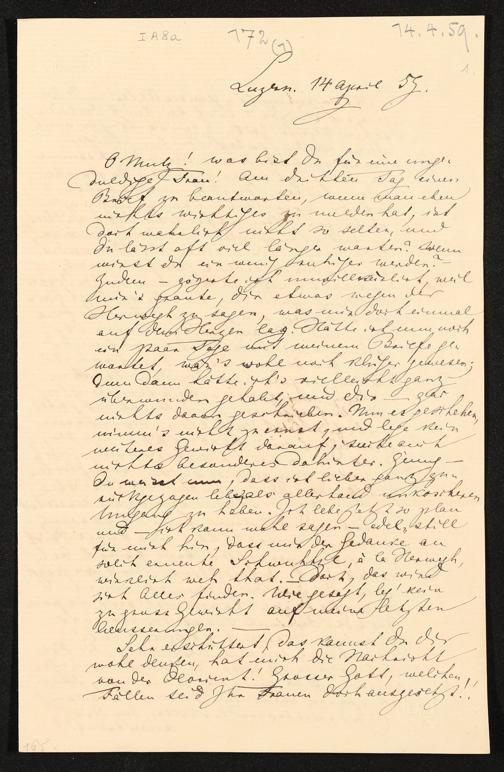 I A 8a
172
(1)
14.4.59.
1.
Luzern. 14 April 59.
O Mutz! was bist Du für eine unge-
duldige Frau! Am dritten Tag einen
Brief zu beantworten, wenn man eben
nichts wichtiges zu melden hat, ist
doch wahrlich nicht so selten, und
Du lässt oft viel länger warten? Wann
wirst du ein wenig ruhiger werden? –
Zudem – zögerte ich unwillkürlich, weil
mir's graute, Dir etwas wegen der
Herwegh zu sagen, was mir doch einmal
auf dem Herzen lag. Hätte ich nun noch
ein paar Tage mit meinem Briefe ge-
wartet, wär's wohl noch klüger gewesen;
denn dann hätte ich's vielleicht ganz
überwunden gehabt, und Dir – gar
nichts davon geschrieben. Nun es geschehen,
nimm's nicht zu ernst, und lege kein
weiteres Gewicht darauf; suche auch
nichts besonderes dahinter. Genug –
Du weisst nun, dass ich lieber ganz zu-
rückgezogen lebe, als allerhand unkoscheren
Umgang zu haben. Ich lebe jetzt so
und – ich kann wohl sagen – edel, still
für mich hin, dass mir der Gedanke an
solch erneute à la Herwegh,
wirklich weh that. – Doch, das wird
sich Alles finden. Wie gesagt, leg' kein
zu gross Gewicht auf meine letzten
Aeusserungen. –
Sehr erschüttert, das kannst Du Dir
wohl denken, hat mich die Nachricht
von der Gross Gott, welchen
Fällen seid Ihr Frauen doch ausgesetzt!!